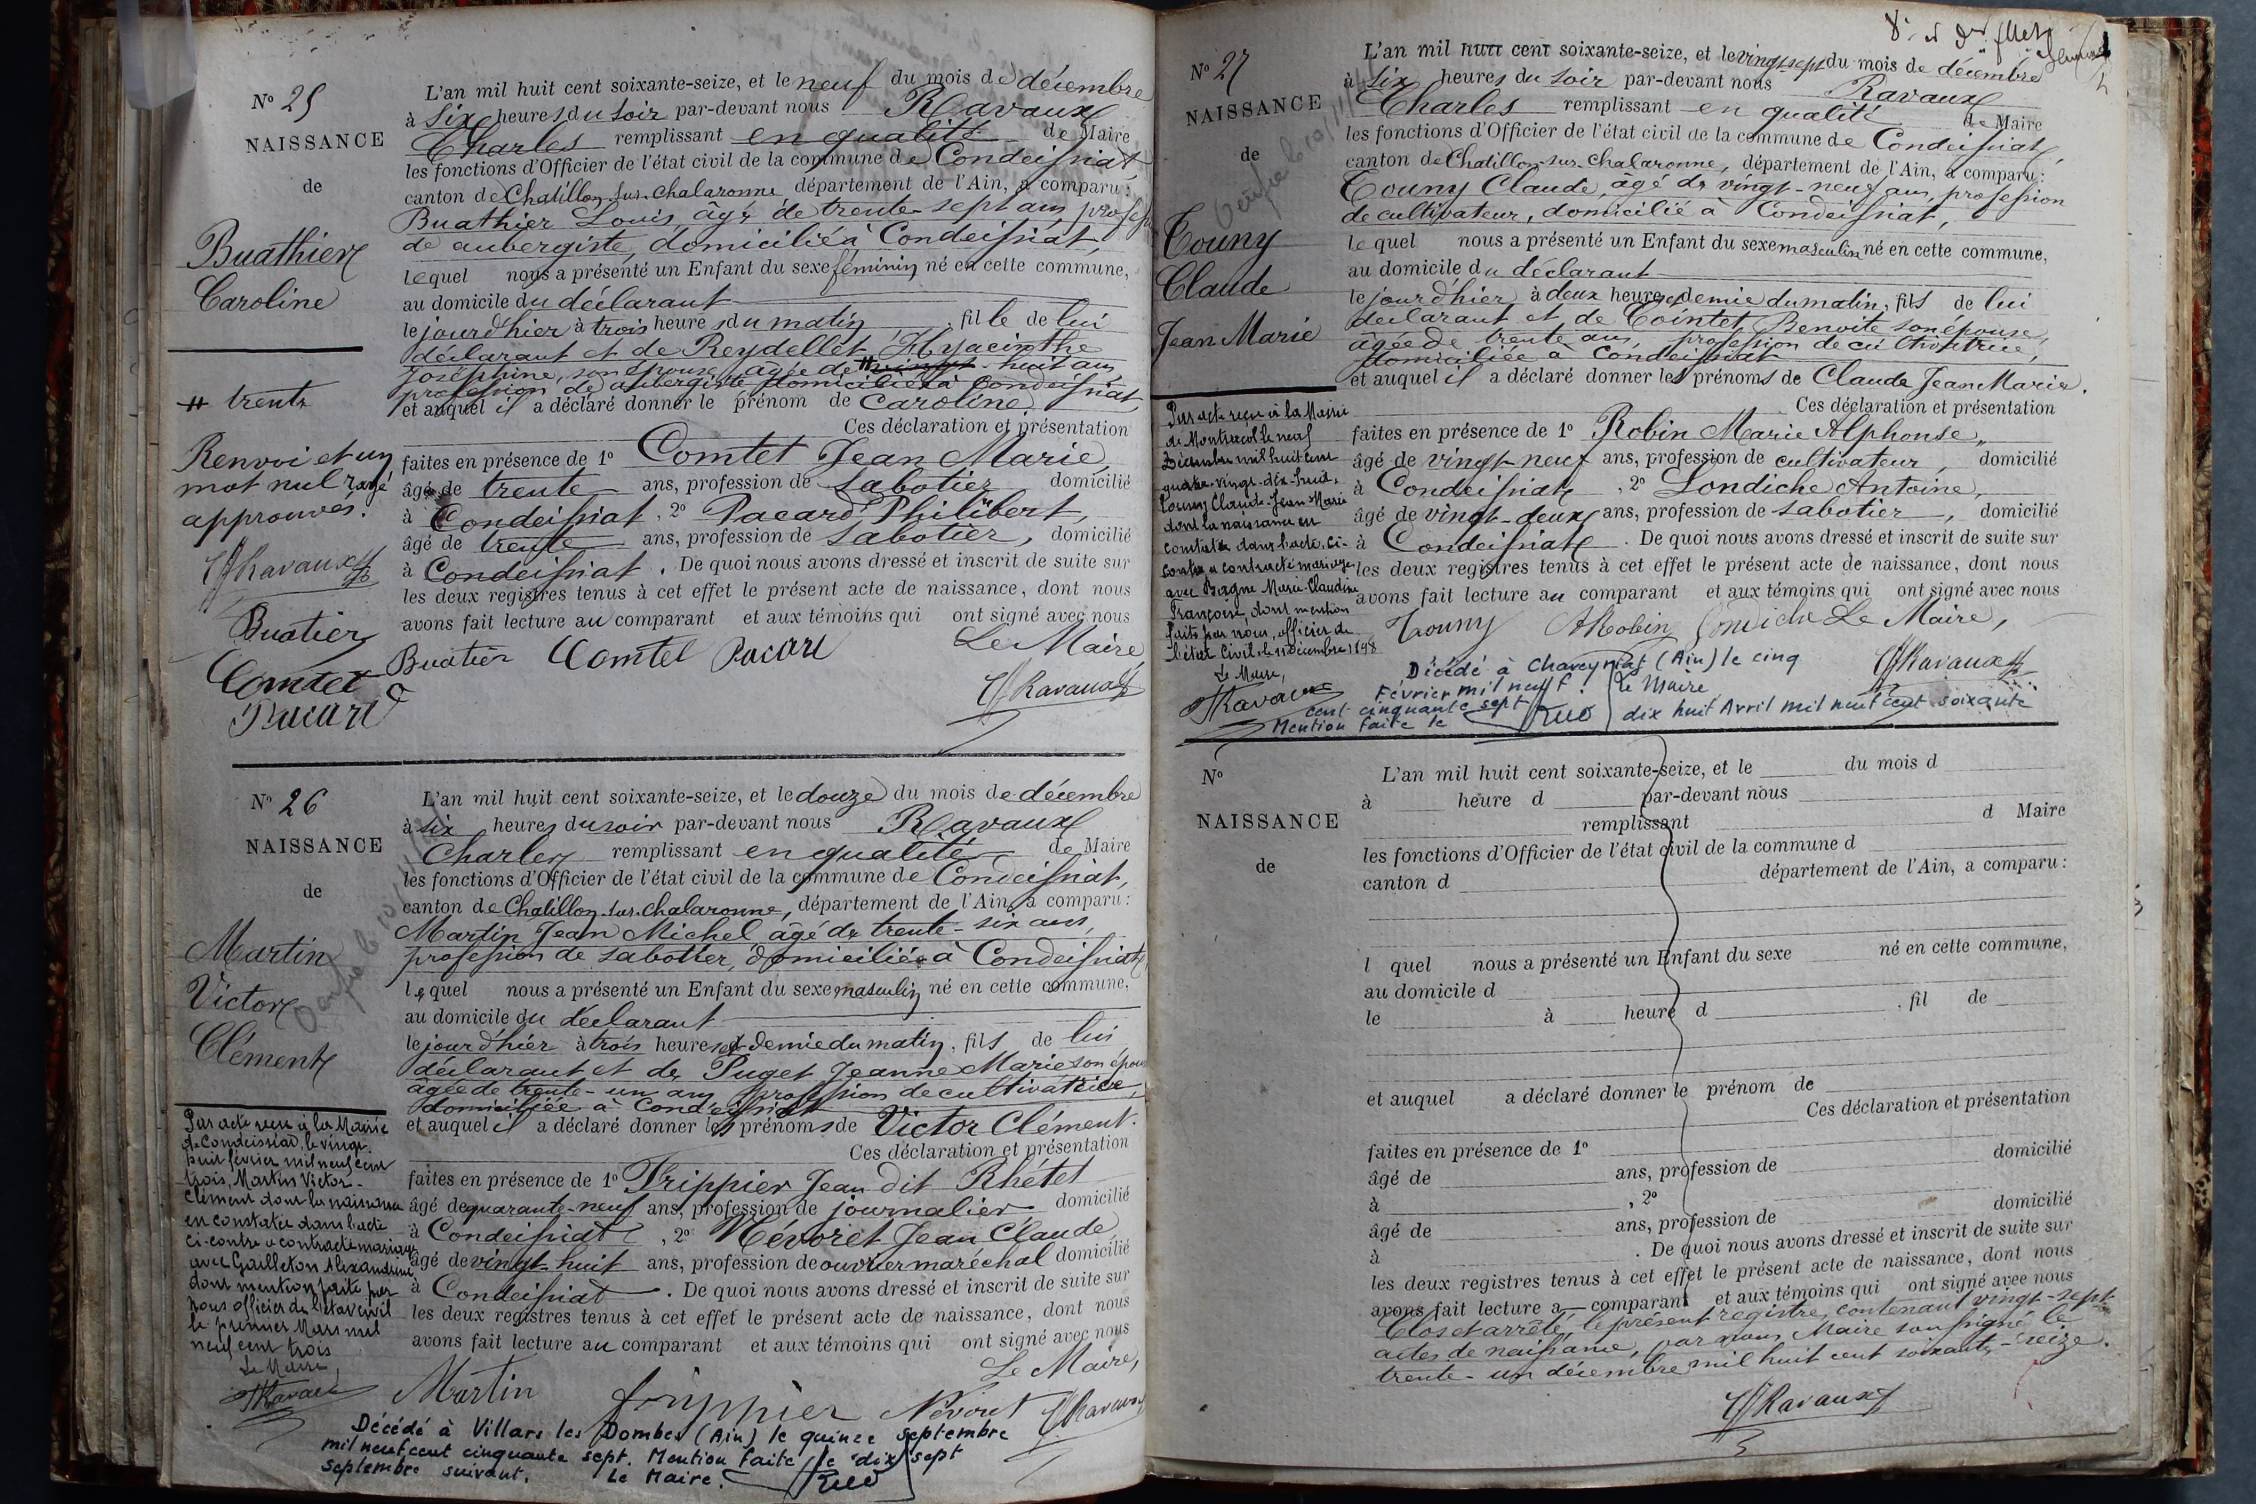 N° 25
NAISSANCE
de
Buathier
Caroline
# trente
Renvoi et un
mot nul rayé
approuvés.
Ravaux
Buatier
Comtet
Pacard
L'an mil huit cent soixante-seize, et le neuf du mois de décembre
à six heures du soir par-devant nous Ravaux
Charles remplissant en qualité de Maire
les fonctions d'Officier de l'état civil de la commune de Condeissiat,
canton de Chatillon-sur-Chalaronne département de l'Ain, a comparu :
Buathier Louis, âgé de trente-sept ans, profession
de aubergiste, domicilié à Condeissiat,
lequel nous a présenté un Enfant du sexe féminin né en cette commune,
au domicile du déclarant
le jour d'hier à trois heures du matin, fille de lui
déclarant et de Reydellet Hyacinthe
Joséphine, son épouse, âgée de # vingt-huit ans,
profession de aubergiste domiciliée à Condeissiat,
et auquel il a déclaré donner le prénom de Caroline.
Ces déclaration et présentation
faites en présence de 1° Comtet Jean Marie,
âgé de trente ans, profession de sabotier domicilié
à Condeissiat, 2° Pacard Philibert,
âgé de trente ans, profession de sabotier, domicilié
à Condeissiat. De quoi nous avons dressé et inscrit de suite sur
les deux registres tenus à cet effet le présent acte de naissance, dont nous
avons fait lecture au comparant et aux témoins qui ont signé avec nous
Le Maire
Buatier Comtet Pacard
Ravaux
N° 26
NAISSANCE
de
Martin
Victor
Clément
Par acte reçu à la Mairie
de Condeissiat, le vingt-
huit février mil neuf cent
trois, Martin Victor-
Clément dont la naissance
en constatée dans l'acte
ci-contre a contracté mariage
avec Gailleton Alexandrine
dont mention faite par
nous officier de l'état civil
le premier Mars mil
neuf cent trois
Le Maire,
Ravaux
L'an mil huit cent soixante-seize, et le douze du mois de décembre
à six heures du soir par-devant nous Ravaux
Charles remplissant en qualité de Maire
les fonctions d'Officier de l'état civil de la commune de Condeissiat,
canton de Chatillon-sur-Chalaronne, département de l'Ain, a comparu :
Martin Jean Michel âgé de trente-six ans,
profession de sabotier, domicilié à Condeissiat
lequel nous a présenté un Enfant du sexe masculin né en cette commune,
au domicile du déclarant
le jour d'hier à trois heures et demie du matin, fils de lui
déclarant et de Puget Jeanne Marie son épouse
âgée de trente-un ans profession de cultivatrice
domiciliée à Condeissiat
et auquel il a déclaré donner les prénoms de Victor Clément.
Ces déclaration et présentation
faites en présence de 1° Trippier Jean dit Rhétet
âgé de quarante-neuf ans, profession de journalier domicilié
à Condeissiat, 2° Névoret Jean Claude,
âgé de vingt-huit ans, profession de ouvrier maréchal domicilié
à Condeissiat. De quoi nous avons dressé et inscrit de suite sur
les deux registres tenus à cet effet le présent acte de naissance, dont nous
avons fait lecture au comparant et aux témoins qui ont signé avec nous
Le Maire,
Martin Trippier Névoret Ravaux
Décédé à Villars les Dombes (Ain) le quinze septembre
mil neuf cent cinquante sept. Mention faite le dix sept
septembre suivant. Le Maire.
N° 27
NAISSANCE
de
Touny
Claude
Jean Marie
Par acte reçu à la Mairie
de Montracol le neuf
Décembre mil huit cent
quatre-vingt-dix-huit,
Touny Claude-Jean-Marie
dont la naissance en
constatée dans l'acte ci-
contre a contracté mariage
avec Bagne Marie-Claudine
Françoise, dont mention
faite par nous, officier de
l'état civil le 11 décembre 1898
Le Maire,
Ravaux
L'an mil huit cent soixante-seize, et le vingt-sept du mois de décembre
à six heures du soir par-devant nous Ravaux
Charles remplissant en qualité de Maire
les fonctions d'Officier de l'état civil de la commune de Condeissiat,
canton de Chatillon-sur-Chalaronne, département de l'Ain, a comparu :
Touny Claude, âgé de vingt-neuf ans, profession
de cultivateur, domicilié à Condeissiat,
lequel nous a présenté un Enfant du sexe masculin né en cette commune,
au domicile du déclarant
le jour d'hier à deux heures et demie du matin, fils de lui
déclarant et de Cointet Benoite son épouse,
âgée de trente ans, profession de cultivatrice,
domiciliée à Condeissiat
et auquel il a déclaré donner les prénoms de Claude Jean Marie.
Ces déclaration et présentation
faites en présence de 1° Robin Marie Alphonse,
âgé de vingt-neuf ans, profession de cultivateur, domicilié
à Condeissiat, 2° Londiche Antoine,
âgé de vingt-deux ans, profession de sabotier, domicilié
à Condeissiat. De quoi nous avons dressé et inscrit de suite sur
les deux registres tenus à cet effet le présent acte de naissance, dont nous
avons fait lecture au comparant et aux témoins qui ont signé avec nous
Touny A Robin Londiche Le Maire,
Ravaux
Décédé à Chaveyriat (Ain) le cinq
Février mil neuf
cent cinquante sept
Mention faite le dix huit Avril mil neuf cent soixante
Le Maire
N°
NAISSANCE
de
L'an mil huit cent soixante-seize, et le du mois d
à heure d par-devant nous
remplissant d Maire
les fonctions d'Officier de l'état civil de la commune d
canton d département de l'Ain, a comparu :
l quel nous a présenté un Enfant du sexe né en cette commune,
au domicile d
le à heure d . fil de
et auquel a déclaré donner le prénom de
Ces déclaration et présentation
faites en présence de 1°
domicilié
âgé de ans, profession de
à , 2°
domicilié
âgé de ans, profession de
à . De quoi nous avons dressé et inscrit de suite sur
les deux registres tenus à cet effet le présent acte de naissance, dont nous
avons fait lecture a comparant et aux témoins qui ont signé avec nous
Clos et arrêté, le présent registre, contenant vingt-sept
actes de naissance, par nous Maire soussigné le
trente-un décembre mil huit cent soixante-seize.
Ravaux